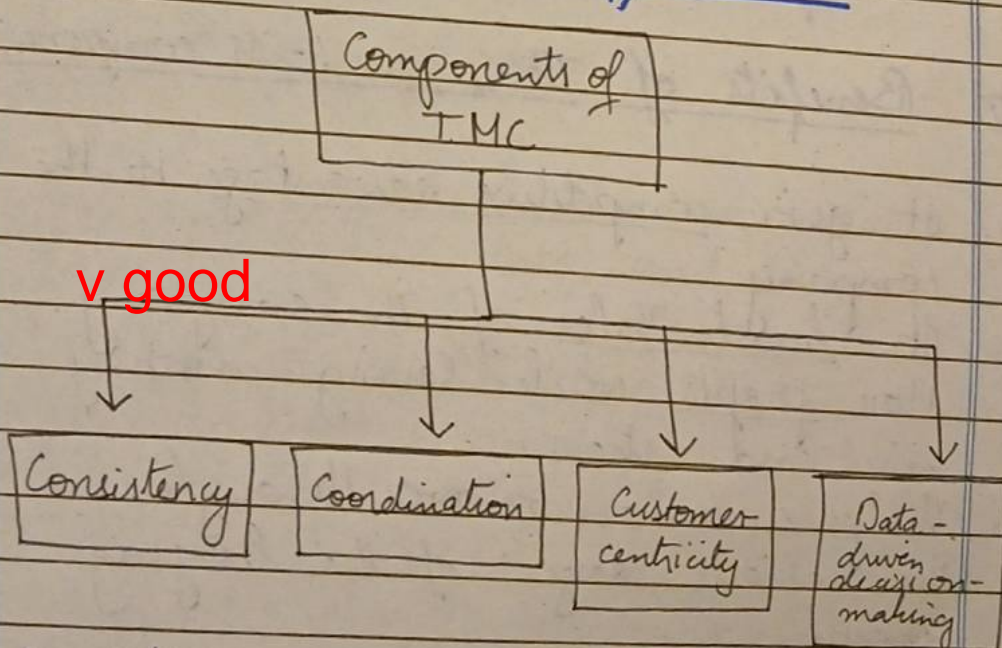 Components of
IMC
v good
Consistency
Coordination
Customer
centricity
Data -
driven
decision-
making